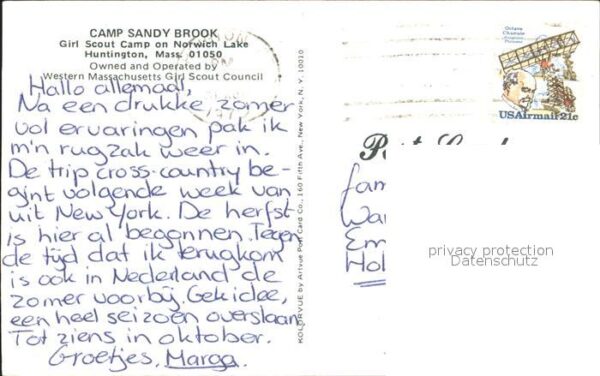 CAMP SANDY BROOK
Girl Scout Camp on Norwich Lake
Huntington, Mass. 01050
Owned and Operated by
Western Massachusetts Girl Scout Council
Hallo allemaal,
Na een drukke, zomer
vol ervaringen pak ik
m'n rugzak weer in.
De trip cross-country be-
gint volgende week van
uit New York. De herfst
is hier al begonnen. Tegen
de tijd dat ik terugkom
is ook in Nederland de
zomer voorbij. Gek idee,
een heel seizoen overslaan
Tot ziens in oktober.
Groetjes, Marga.
KOLORVUE by Artvue Post Card Co., 160 Fifth Ave., New York, N. Y. 10010
Octave
Chanute
Aviation
Pioneer
USAirmail 21c
Post
fam
Wa
Em
Hol
privacy protection
Datenschutz